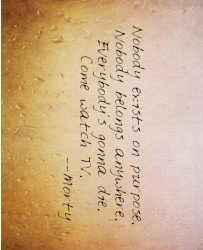 Nobody exists on purpose.
Nobody belongs anywhere.
Everybody's gonna die.
Come watch TV.
---Morty